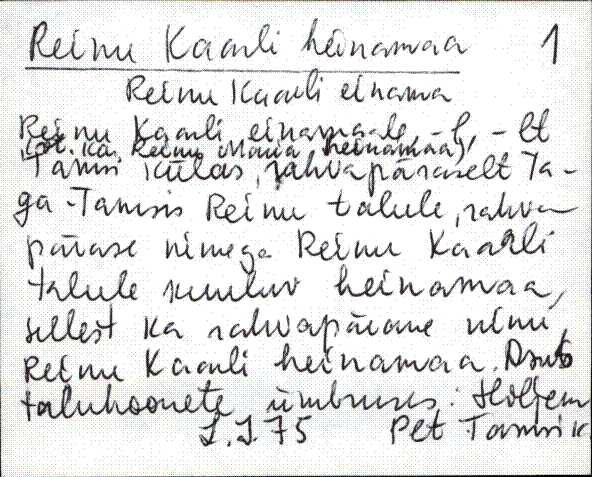 Reinu Kaarli heinamaa 1
Reinu Kaarli einama
Reinu Kaarli einamaale, -l, -lt
(vt. ka Reinu Maria heinamaa),
Tamsi külas, rahvapäraselt Ta-
ga-Tamsis Reinu talule, rahva-
pärase nimega Reinu Kaarli
talule kuuluv heinamaa,
sellest ka rahvapärane nimi,
Reinu Kaarli heinamaa. Asub
taluhoonete ümbruses. Holjem
L.J.75 Pet Tamsi k.